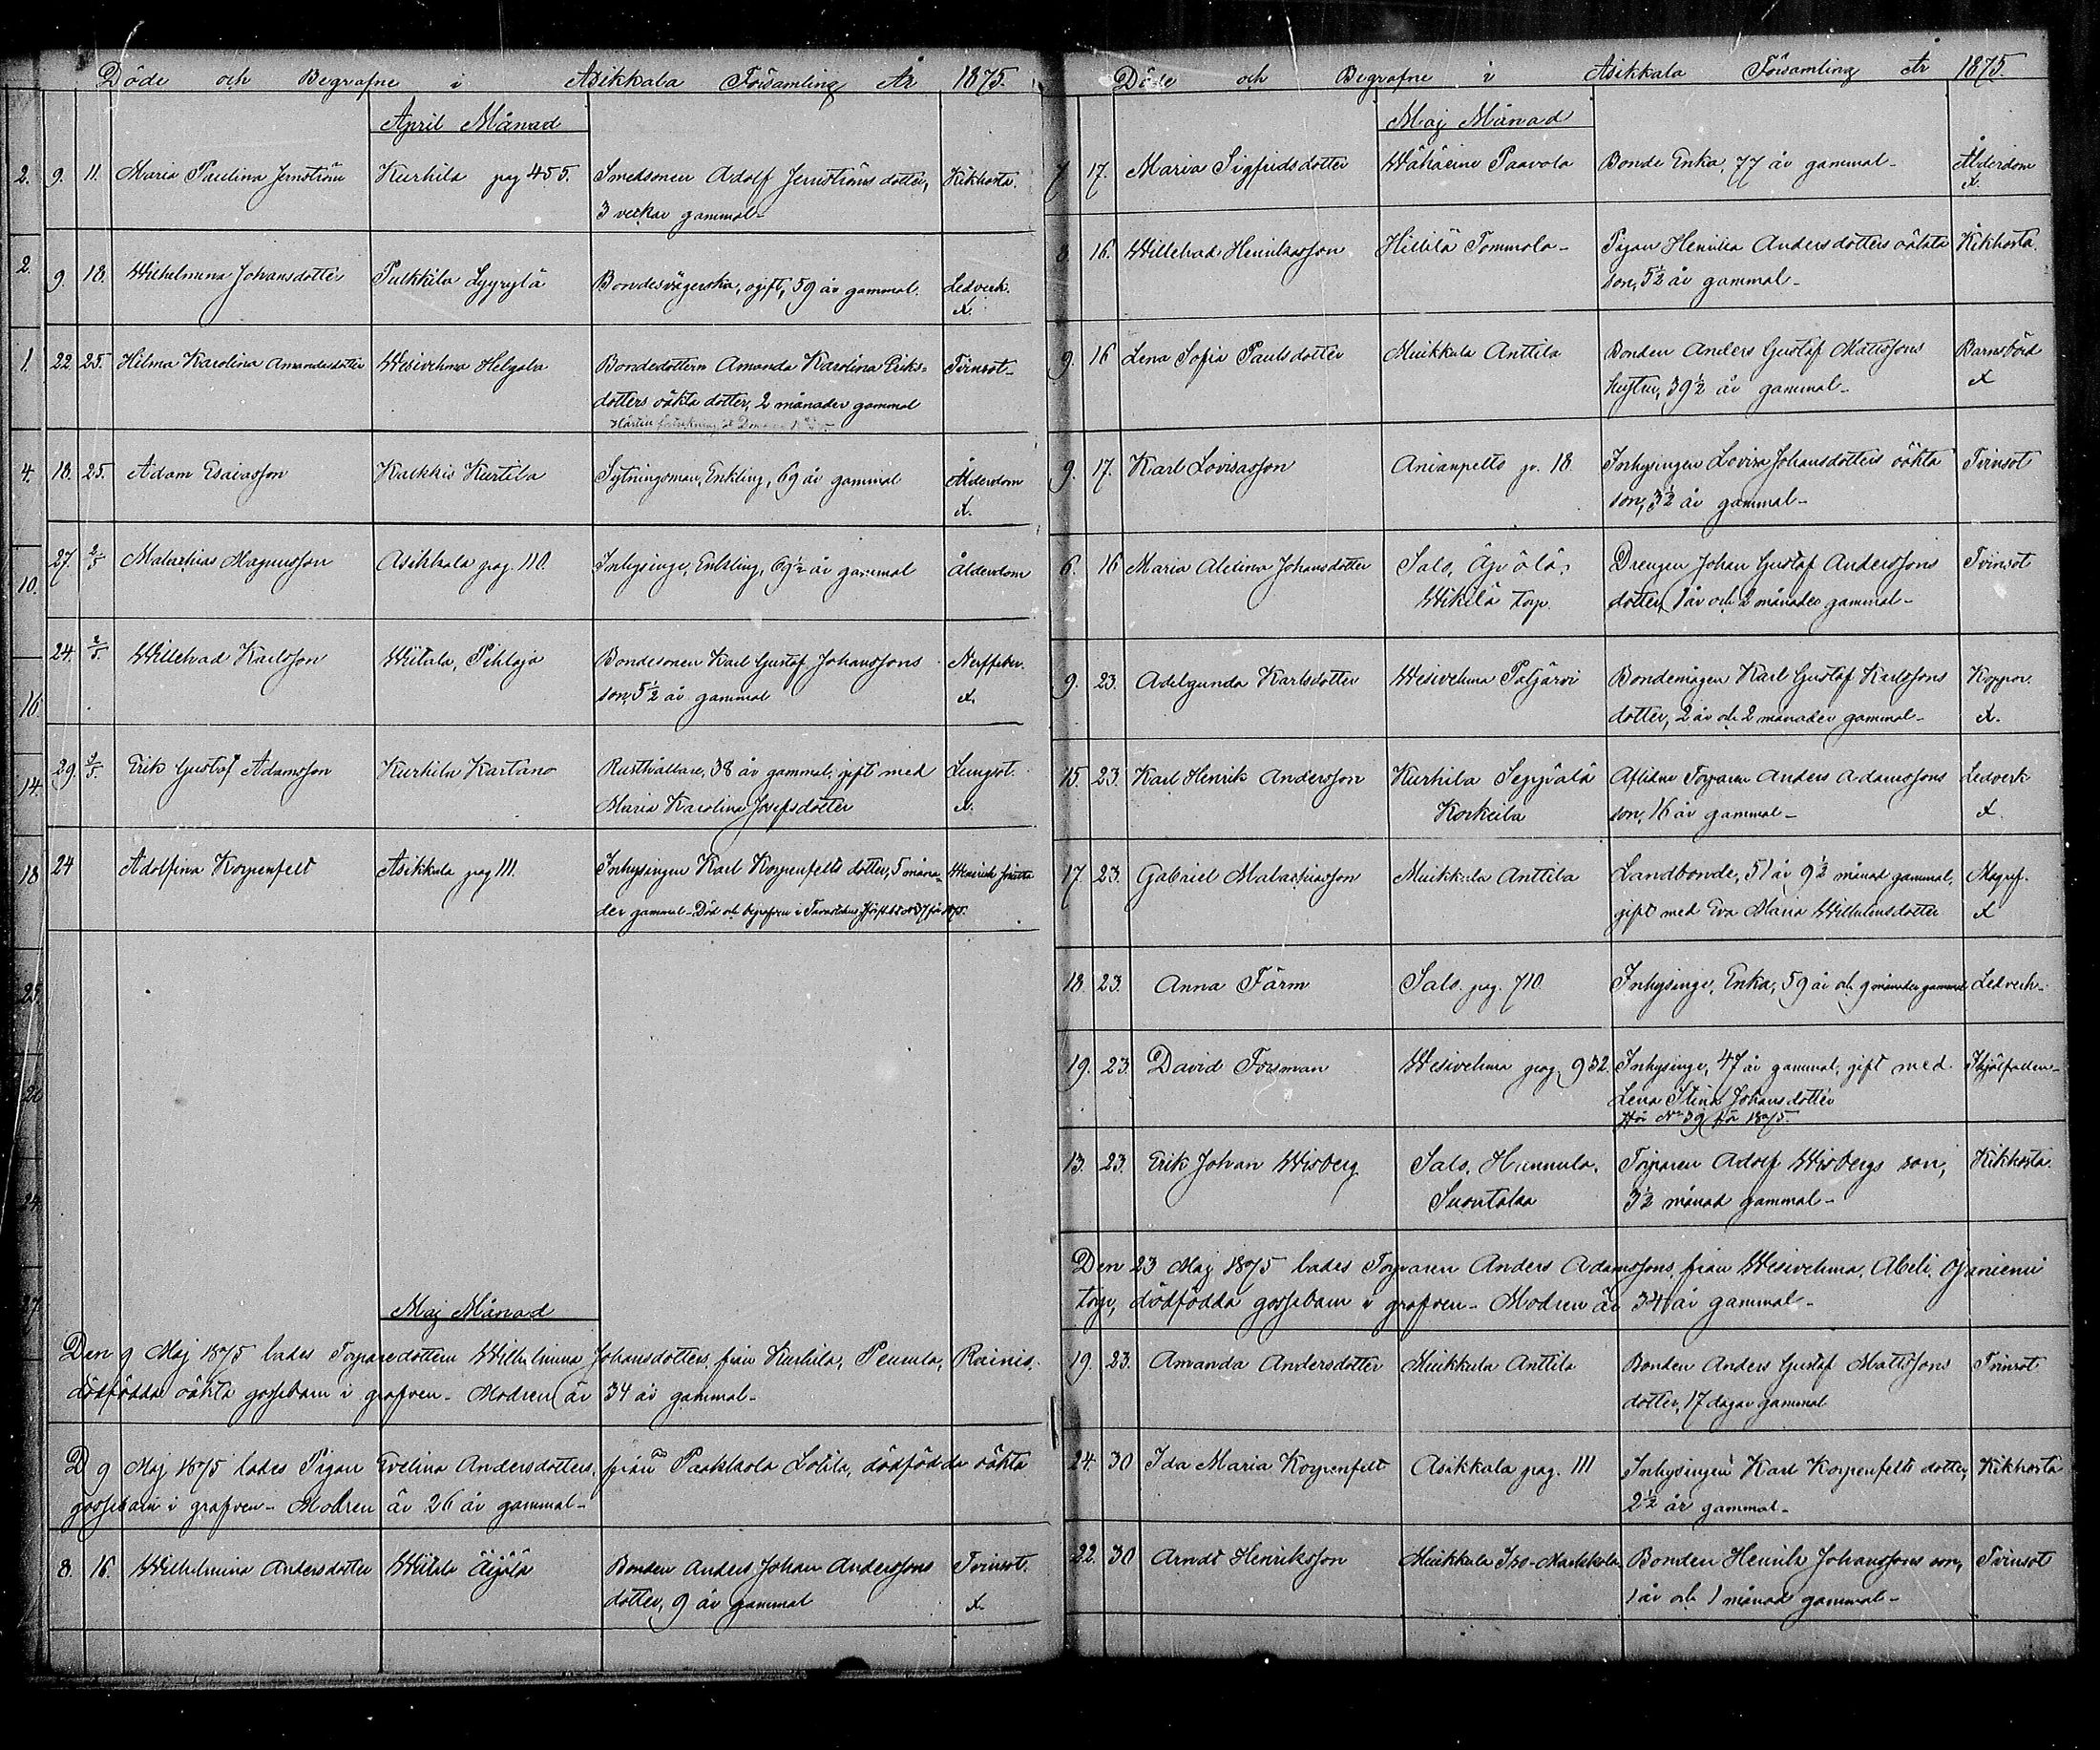 Döde och Begrafne i Asikkala Församling År 1875.
April Månad
9. 11. Maria Paulina Jernström Kurhila pag 455. Smedsonen Adolf Jernströms dotter, Kikhosta.
3 veckor gammal-
9. 18. Wilhelmina Johansdotter Pulkkila Lyyrylä Bondesvägerska, ogift, 59 år gammal. Ledverk.
x.
22. 25. Hilma Karolina Amandasdotter Wesivehma Helgala Bondedottern Amanda Karolina Eriks-
dotters oäkta dotter, 2 månader gammal Tvinsot-
18. 25. Adam Esaiasson Kalkkis Kurtila Sytningsman, Enkling, 69 år gammal Ålderdom
x.
27. 2/5 Malachias Magnusson Asikkala pag. 110. Inhysinge, Enkling, 69 1/2 år gammal Ålderdom
24. 2/5. Willehad Karlsson Wiitala, Pihlaja Bondesonen Karl Gustaf Johanssons Nerffeber.
son, 5 1/2 år gammal x.
29. Erik Gustaf Adamsson Kurhila Kartano Rusthållare, 38 år gammal, gift med Lungsot.
Maria Karolina Josefsdotter x.
24 Adolfina Korpenfelt Asikkala pag 111. Inhysingen Karl Korpenfelts dotter, 5 måna-
der gammal- Död och begrafven i för 1875.
Maj Månad
Den 9 Maj 1875 lades Torparedottern Wilhelmina Johansdotters, från Kurhila, Peurula, Roinis,
dödfödda oäkta gossebarn i grafven- Modren är 34 år gammal-
D 9 Maj 1875 lades Pigan Evelina Andersdotters, från Paakkola Lotila, dödfödda oäkta
gossebarn i grafven- Modren är 26 år gammal-
8. 16. Wilhelmina Andersdotter Wiitala Äijälä Bonden Anders Johan Anderssons Tvinsot.
dotter, 9 år gammal x.
Döde och Begrafne i Asikkala Församling År 1875.
Maj Månad
17. Maria Sigfridsdotter Wähäeine Paavola Bonde Enka, 77 år gammal- Ålderdom
x.
8. 16. Willehad Henriksson Hillilä Tommola- Pigan Andersdotters oäkta Kikhosta.
son, 5 1/2 år gammal-
9. 16 Lena Sofia Paulsdotter Muikkula Anttila Bonden Anders Gustaf Mattssons Barnsbörd
hustru, 39 1/2 år gammal- x
9. 17. Karl Lovisasson Anianpelto p. 18. Inhysingen Lovisa Johansdotters oäkta Tvinsot
son, 3 1/2 år gammal-
6. 16 Maria Johansdotter Salo, Äijälä, Drengen Johan Gustaf Anderssons Tvinsot
Wikilä torp. dotter, 1 år och 2 månader gammal-
9. 23. Adelgunda Karlsdotter Wesivehma Paljärvi Bondemågen Karl Gustaf Karlssons Koppor.
dotter, 2 år och 2 månader gammal- x.
15. 23. Karl Henrik Andersson Kurhila Seppälä Aflidne Torparen Anders Adamssons Ledverk
Korkeila son, 16 år gammal- x.
17. 23. Gabriel Malachiasson Muikkula Anttila Landbonde, 51 år, 9 1/2 månad gammal, Magref.
gift med Eva Maria Wilhelmsdotter x
18. 23. Anna Färm Salo pag. 710. Inhysinge, Enka, 59 år och 9 månader gammal Ledverk-
19. 23. David Forsman Wesivehma pag. 932. Inhysinge, 47 år gammal, gift med
Lena Stina Johansdotter
No 39 för 1875.
13. 23. Erik Johan Wisberg Salo, Hannula, Torparen Adolf Wisbergs son, Kikhosta.
Suontakaa 3 1/2 månad gammal-
Den 23 Maj 1875 lades Torparen Anders Adamssons, från Wesivehma, Abeli, Ojaniemi
torp, dödfödda gossebarn i grafven- Modren är 34 år gammal-
19. 23. Amanda Andersdotter Muikkula Anttila Bonden Anders Gustaf Mattssons Tvinsot
dotter, 17 dagar gammal
24. 30 Ida Maria Korpenfelt Asikkala pag. 111 Inhysingen Karl Korpenfelts dotter, Kikhosta
2 1/2 år gammal-
22. 30 Arndt Henriksson Muikkula Iso-Markkola Bonden Henrik Johanssons son, Tvinsot
1 år och 1 månad gammal-